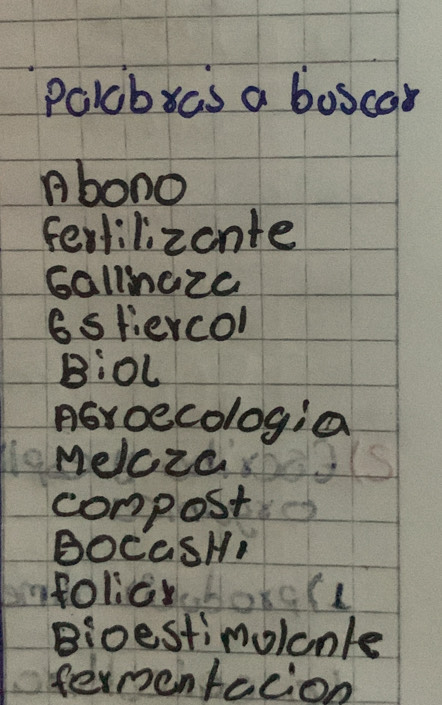 Palabras a buscar
Abono
fertilizante
Gallinaza
Estiercol
Biol
AGroecologia
Melaza
compost
BOCASHi
foliar
Bioestimulante
fermentacion